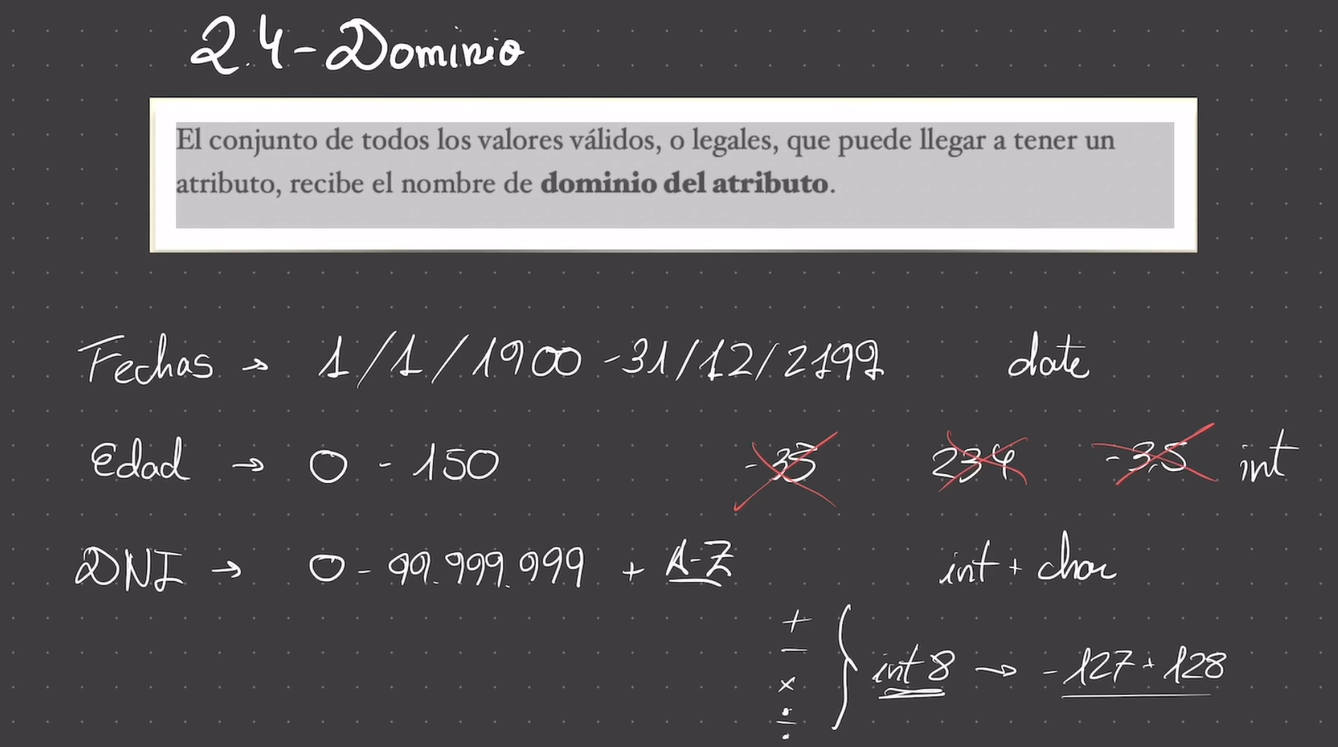 2.4-Dominio
El conjunto de todos los valores válidos, o legales, que puede llegar a tener un
atributo, recibe el nombre de dominio del atributo.
Fechas → 1/1/1900 - 31/12/2199 date
Edad → 0 - 150 -35 234 -3,5 int
DNI → 0 - 99.999.999 + A-Z int + char
+
-
x
÷
} int 8 → -127 + 128